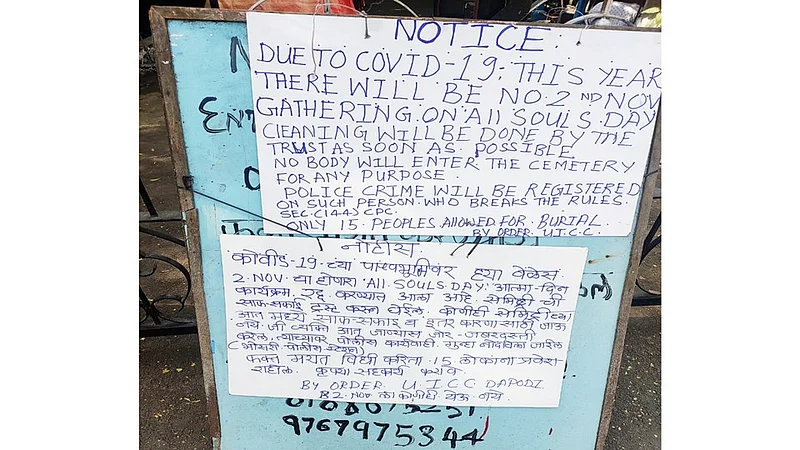 NOTICE.
DUE TO COVID-19, THIS YEAR
THERE WILL BE NO 2ND NOV
GATHERING. ON All SOULS DAY
CLEANING WILL BE DONE BY THE
TRUST AS SOON AS POSSIBLE
NO BODY WILL ENTER THE CEMETERY
FOR ANY PURPOSE.
POLICE CRIME WILL BE REGISTERED
ON SUCH PERSON WHO BREAKS THE RULES.
SEC. (144) CPC.
ONLY 15 PEOPLES ALLOWED FOR BURIAL.
BY ORDER U.I.C.C.
नोटीस.
कोवीड-19 च्या पार्श्वभुमिवर ह्या वेळेस.
2. NOV. चा होणारा All SOULS DAY. आत्मा-दिन
कार्यक्रम. रद्द करण्यात आला आहे. सेमिट्री ची
साफ-सफाई ट्रस्ट करून घेईल. कोणीही सेमिट्री
आत मध्ये साफ-सफाई व इतर कारणा साठी जाऊ
नये. जी व्यक्ति आत जाण्यास जोर-जबरदस्ती
करेल. त्याच्यावर पोलीस कारवाही. गुन्हा नोंदविला जाईल
(भोसरी पोलीस स्टेशन)
फक्त मयत विधी करिता 15 लोकांना प्रवेश
राहील. कृपया सहकार्य करावे.
BY ORDER U.I.C.C DAPODI.
2. NOV. ला कोणीही येऊ नये.
9767975344